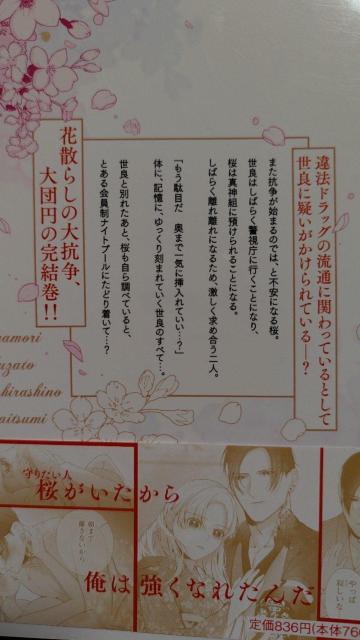 違法ドラッグの流通に関わっているとして
世良に疑いがかけられている―?
また抗争が始まるのでは、と不安になる桜。
世良はしばらく警視庁に行くことになり、
桜は真神組に預けられることになる。
しばらく離れ離れになるため、激しく求め合う二人。
「もう駄目だ 奥まで一気に挿入れていい…?」
体に、記憶に、ゆっくり刻まれていく世良のすべて…。
世良と別れたあと、桜も自ら調べていると、
とある会員制ナイトプールにたどり着いて…?
花散らしの大抗争、
大団円の完結巻!!
namori
uzato
hirashino
aitsumi
守りたい人
桜がいたから
俺は強くなれたんだ
朝まで
離さないから
やっぱ
寂しいな…
定価836円(本体76